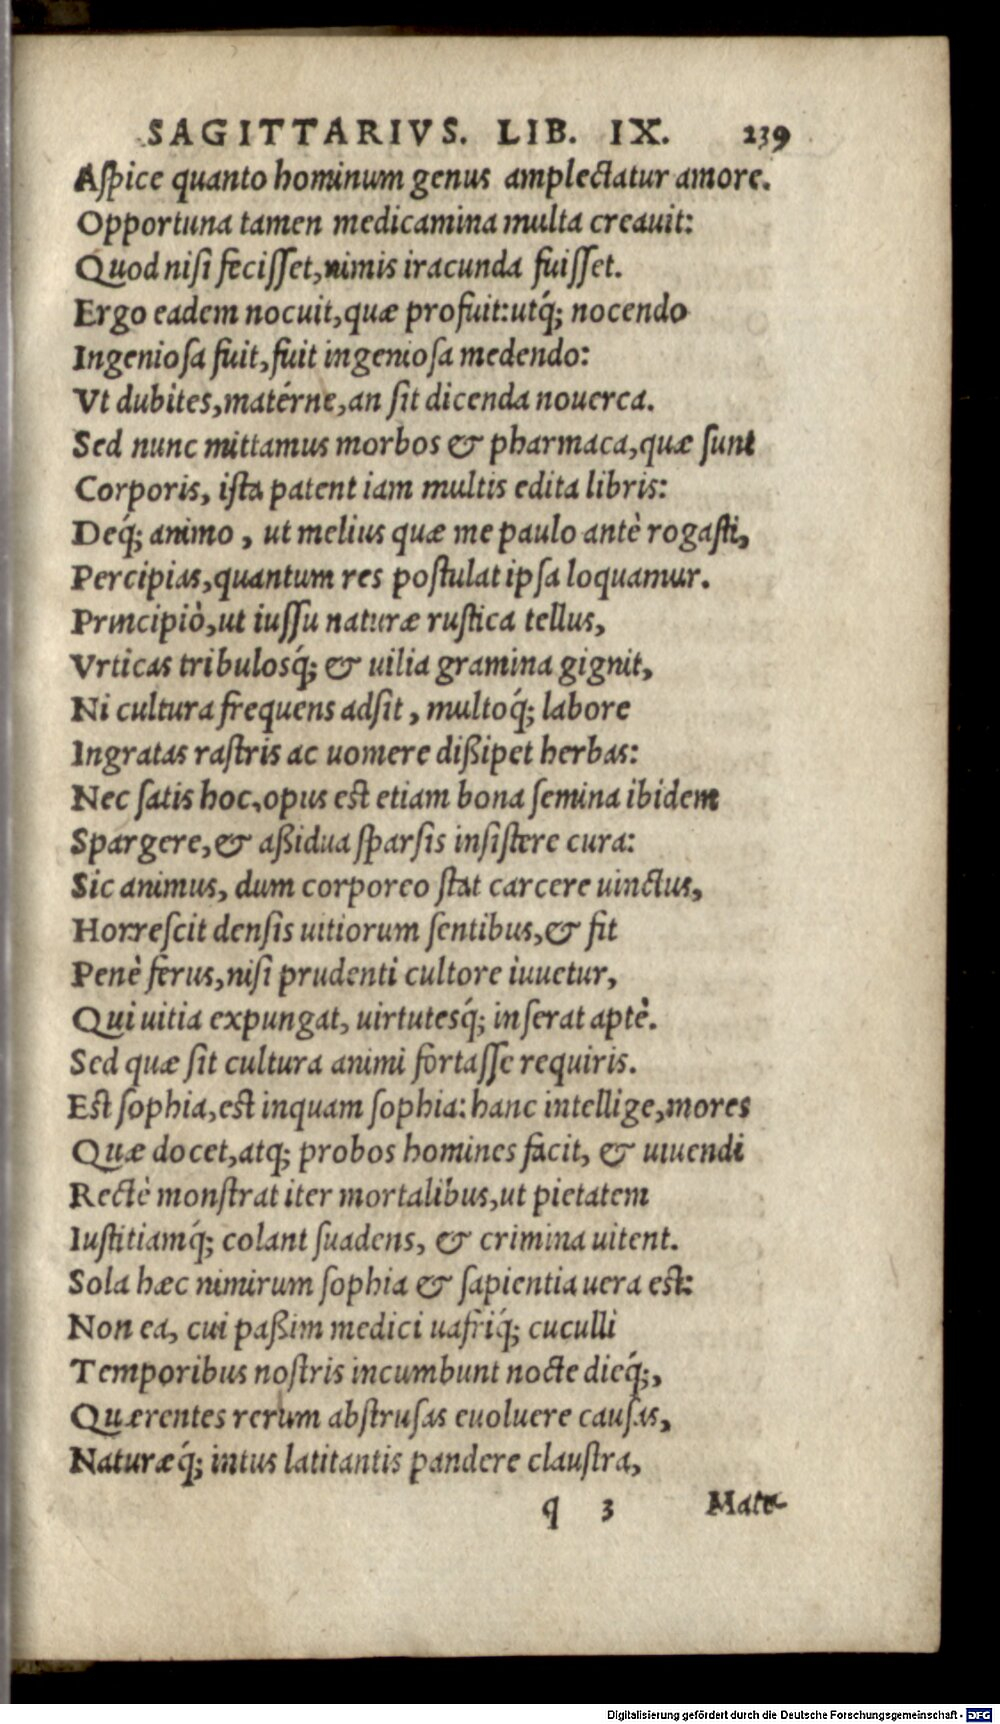 SAGITTARIVS. LIB. IX. 239
Aſpice quanto hominum genus amplectatur amore.
Opportuna tamen medicamina multa creauit:
Quod niſi feciſſet, nimis iracunda fuiſſet.
Ergo eadem nocuit, quæ profuit: utq́; nocendo
Ingenioſa fuit, fuit ingenioſa medendo:
Vt dubites, matérne, an ſit dicenda nouerca.
Sed nunc mittamus morbos & pharmaca, quæ ſunt
Corporis, iſta patent iam multis edita libris:
Deq́; animo, ut melius quæ me paulo antè rogaſti,
Percipias, quantum res poſtulat ipſa loquamur.
Principiò, ut iuſſu naturæ ruſtica tellus,
Vrticas tribulosq́; & uilia gramina gignit,
Ni cultura frequens adſit, multoq́; labore
Ingratas raſtris ac uomere dißipet herbas:
Nec ſatis hoc, opus est etiam bona ſemina ibidem
Spargere, & aßidua ſparſis inſiſtere cura:
Sic animus, dum corporeo ſtat carcere uinctus,
Horreſcit denſis uitiorum ſentibus, & fit
Penè ferus, niſi prudenti cultore iuuetur,
Qui uitia expungat, uirtutesq́; inſerat aptè.
Sed quæ ſit cultura animi fortaſſe requiris.
Est ſophia, est inquam ſophia: hanc intellige, mores
Quæ docet, atq; probos homines facit, & uiuendi
Rectè monſtrat iter mortalibus, ut pietatem
Iuſtitiamq́; colant ſuadens, & crimina uitent.
Sola hæc nimirum ſophia & ſapientia uera est:
Non ea, cui paßim medici uafriq́; cuculli
Temporibus noſtris incumbunt nocte dieq́;,
Quærentes rerum abſtruſas euoluere cauſas,
Naturæq́; intus latitantis pandere clauſtra,
q 3 Mate-
Digitalisierung gefördert durch die Deutsche Forschungsgemeinschaft - DFG